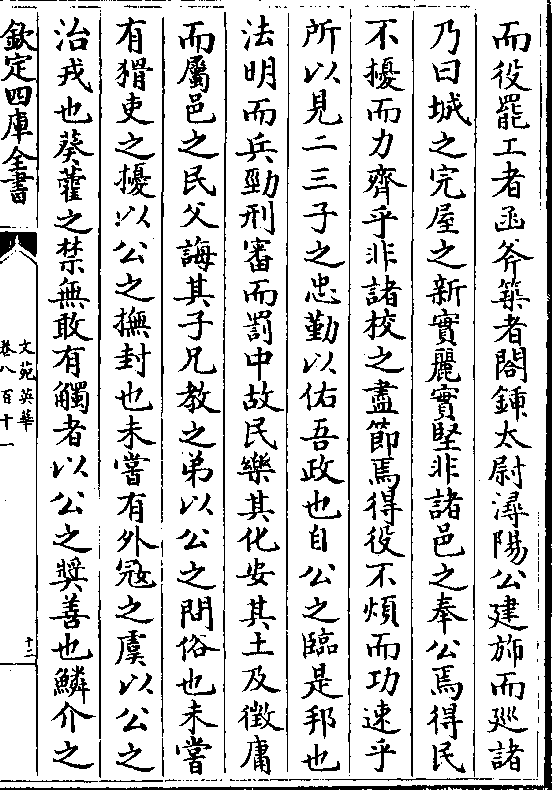 而役罷工者函斧築者閣鍤太尉潯陽公建斾而廵諸
乃曰城之完屋之新實麗實堅非諸邑之奉公焉得民
不擾而力齊乎非諸校之盡節焉得役不煩而功速乎
所以見二三子之忠勤以佑吾政也自公之臨是邦也
法明而兵勁刑審而罰中故民樂其化安其土及徵庸
而屬邑之民父誨其子兄教之弟以公之問俗也未嘗
有猾吏之擾以公之撫封也未嘗有外冦之虞以公之
治戎也葵藿之禁無敢有觸者以公之奬善也鱗介之
欽定四庫全書
文苑英華
卷八百十一
十二